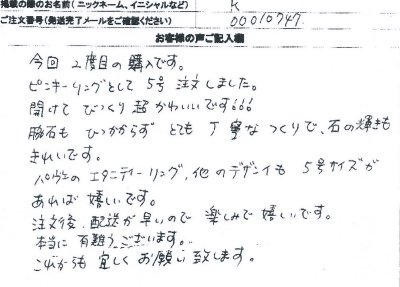 掲載の際のお名前(ニックネーム、イニシャルなど) K
ご注文番号(発送完了メールをご確認ください) 00010747
お客様の声ご記入欄
今回 2度目の購入です。
ピンキーリングとして 5号 注文しました。
開けて びっくり 超かわいいです!!!
脇石も ひっかからず とても 丁寧な つくりで、石の輝きも
きれいです。
パヴェの エタニティーリング、他のデザインも 5号サイズが
あれば 嬉しいです。
注文後、配送が早いので 楽しみで 嬉しいです。
本当に 有難うございます。
これからも 宜しく お願い致します。